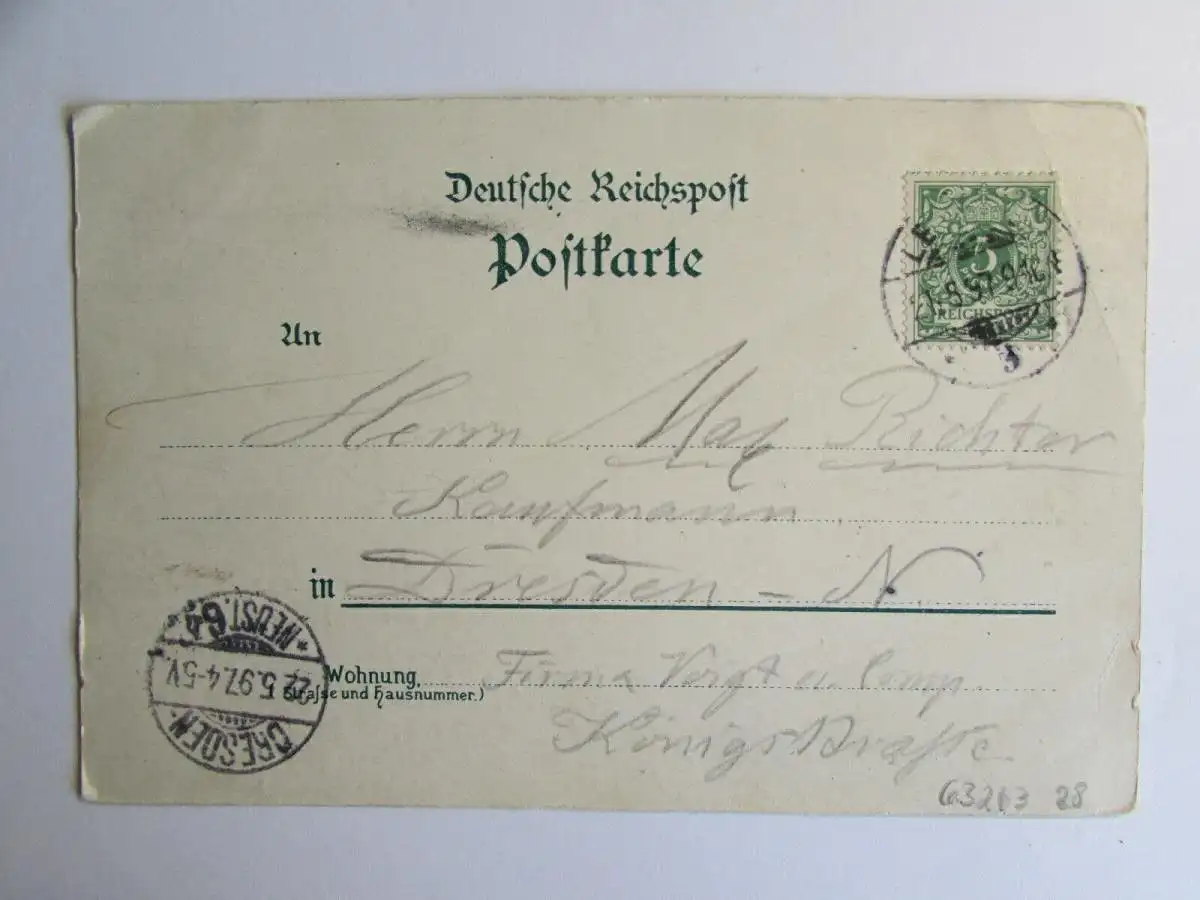 Deutsche Reichspost
Postkarte
5
REICHSPOST
An
Herrn Max Richter
Kaufmann
in Dresden - N.
Wohnung
(Strasse und Hausnummer.)
Firma Voigt u. Comp.
Königstrasse
DRESDEN-
22.5.97.4-5V.
*NEUST.6*
63263 28